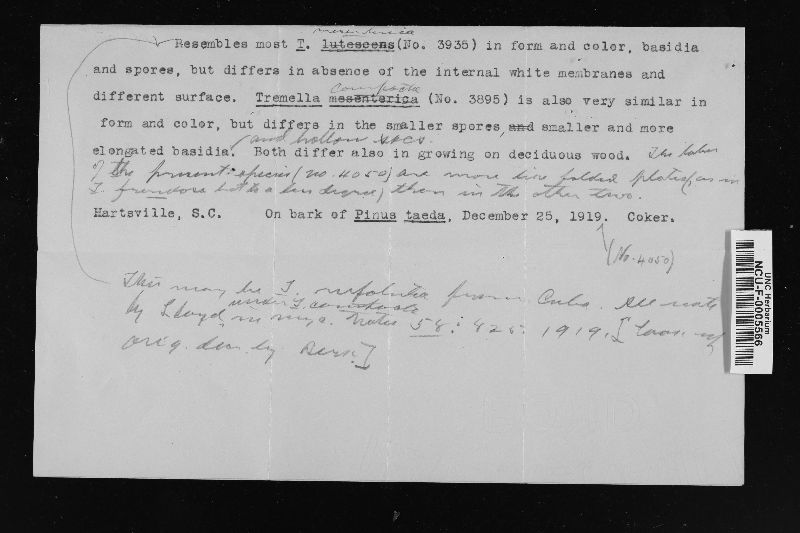 mesenterica
Resembles most T. lutescens(No. 3935) in form and color, basidia
and spores, but differs in absence of the internal white membranes and
compacta
different surface. Tremella mesenterica (No. 3895) is also very similar in
form and color, but differs in the smaller spores, and smaller and more
and hollow sacs.
elongated basidia. Both differ also in growing on deciduous wood. The lobes
of the present species (no. 4050) are more like folded plates, as in
T. frondosa but to a less degree, than in the other two.
Hartsville, S.C. On bark of Pinus taeda, December 25, 1919. Coker.
(No. 4050)
This may be T. rufolutea from Cuba. See note
under T.
by Lloyd in myc. Notes 58: 825. 1919. [Look up
orig. des. by Berk.]
UNC Herbarium
NCU-F-0005566